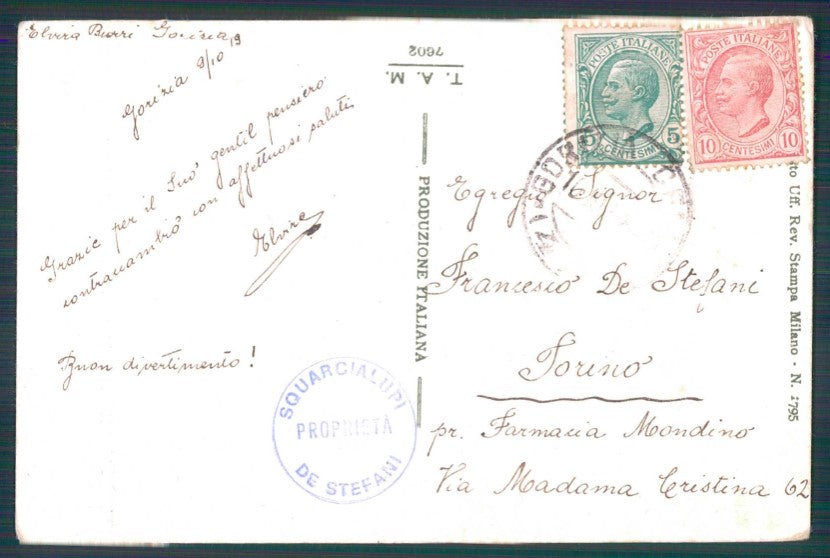 Elvira Burri Gorizia
Gorizia 9/10 19
Grazie per il Suo gentil pensiero
contracambio con affettuosi saluti
Elvira
Buon divertimento!
T. A. M.
7602
PRODUZIONE ITALIANA
POSTE ITALIANE
5 5
CENTESIMI
POSTE ITALIANE
10 10
CENTESIMI
Egregio Signor
Francesco De Stefani
Torino
pr. Farmacia Mondino
Via Madama Cristina 62
SQUARCIALUPI
PROPRIETÀ
DE STEFANI
Uff. Rev. Stampa Milano - N. 1795